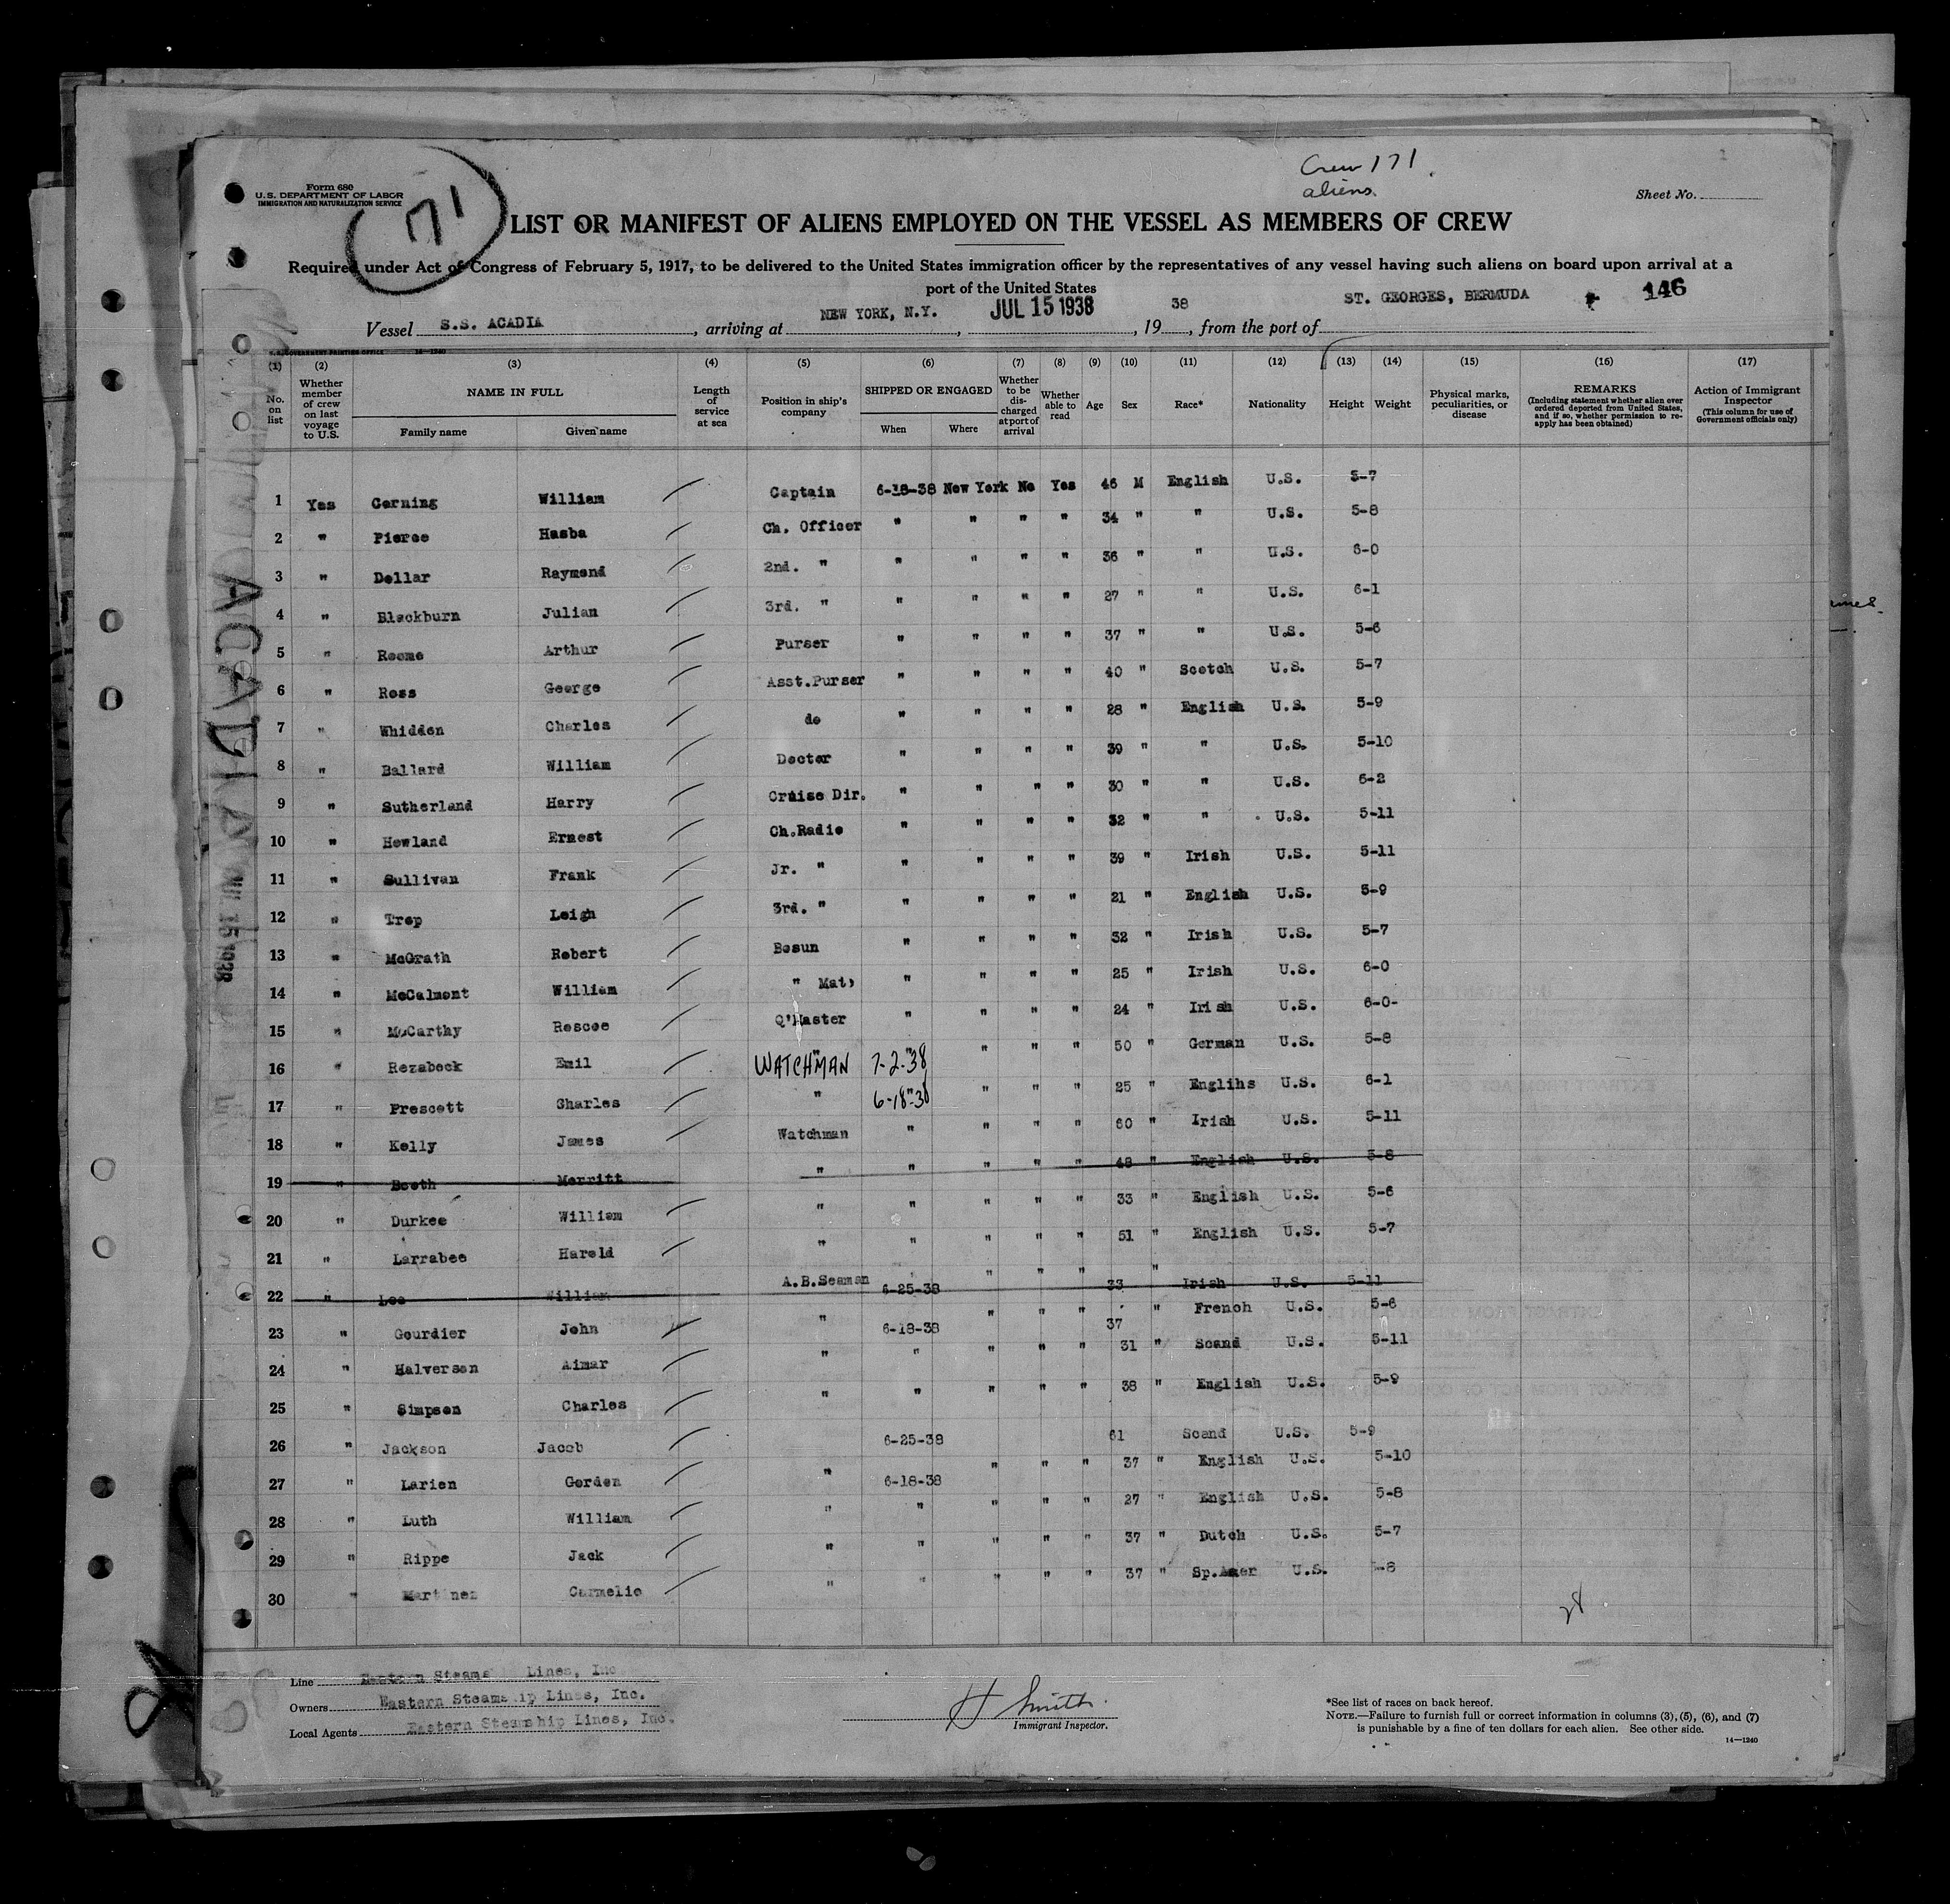 Form 680
U.S. DEPARTMENT OF LABOR
IMMIGRATION AND NATURALIZATION SERVICE
171
Crew 171
aliens
Sheet No.
LIST OR MANIFEST OF ALIENS EMPLOYED ON THE VESSEL AS MEMBERS OF CREW
Required under Act of Congress of February 5, 1917, to be delivered to the United States immigration officer by the representatives of any vessel having such aliens on board upon arrival at a
port of the United States
Vessel S.S. ACADIA, arriving at NEW YORK, N.Y., JUL 15 1938, 1938, from the port of ST. GEORGES, BERMUDA 146
U.S. GOVERNMENT PRINTING OFFICE 14—1240
(1) (2) (3) (4) (5) (6) (7) (8) (9) (10) (11) (12) (13) (14) (15) (16) (17)
No. on list
Whether member of crew on last voyage to U.S.
NAME IN FULL
Family name
Given name
Length of service at sea
Position in ship's company
SHIPPED OR ENGAGED
When
Where
Whether to be discharged at port of arrival
Whether able to read
Age
Sex
Race*
Nationality
Height
Weight
Physical marks, peculiarities, or disease
REMARKS
(Including statement whether alien ever ordered deported from United States, and if so, whether permission to reapply has been obtained)
Action of Immigrant Inspector
(This column for use of Government officials only)
1 Yes Corning William Captain 6-18-38 New York No Yes 46 M English U.S. 5-7
2 " Pierce Hasba Ch. Officer " " " " 34 " " U.S. 5-8
3 " Dollar Raymond 2nd. " " " " " 36 " " U.S. 6-0
4 " Blackburn Julian 3rd. " " " " " 27 " " U.S. 6-1
5 " Roome Arthur Purser " " " " 37 " " U.S. 5-6
6 " Ross George Asst.Purser " " " " 40 " Scotch U.S. 5-7
7 " Whidden Charles do " " " " 28 " English U.S. 5-9
8 " Ballard William Doctor " " " " 39 " " U.S. 5-10
9 " Sutherland Harry Cruise Dir. " " " " 30 " " U.S. 6-2
10 " Howland Ernest Ch.Radio " " " " 32 " " U.S. 5-11
11 " Sullivan Frank Jr. " " " " " 39 " Irish U.S. 5-11
12 " Trop Leigh 3rd. " " " " " 21 " English U.S. 5-9
13 " McGrath Robert Bosun " " " " 32 " Irish U.S. 5-7
14 " McCalmont William " Mat, " " " " 25 " Irish U.S. 6-0
15 " McCarthy Roscoe Q'Master " " " " 24 " Irish U.S. 6-0-
16 " Rezabeck Emil WATCHMAN " 7-2-38 " " " 50 " German U.S. 5-8
17 " Prescott Charles " 6-18-38 " " " 25 " Englihs U.S. 6-1
18 " Kelly James Watchman " " " " 60 " Irish U.S. 5-11
19 " Booth Merritt " " " " " 48 " English U.S. 5-8
20 " Durkee William " " " " " 33 " English U.S. 5-6
21 " Larrabee Harold " " " " " 51 " English U.S. 5-7
22 " Lee William A.B.Seaman 6-25-38 " " " 33 " Irish U.S. 5-11
23 " Gourdier John " 6-18-38 " " " 37 " French U.S. 5-6
24 " Halverson Aimar " " " " " 31 " Scand U.S. 5-11
25 " Simpson Charles " " " " " 38 " English U.S. 5-9
26 " Jackson Jacob 6-25-38 61 Scand U.S. 5-9
27 " Larien Gorden " 6-18-38 " " " 37 " English U.S. 5-10
28 " Luth William " " " " " 27 " English U.S. 5-8
29 " Rippe Jack " " " " " 37 " Dutch U.S. 5-7
30 " Martinez Carmelio " " " " " 37 " Sp.Amer U.S. -8
28
ACADIA
JUL 15 1938
Line Eastern Steams Lines, Inc
Owners Eastern Steamship Lines, Inc.
Local Agents Eastern Steamship Lines, Inc.
H Smith
Immigrant Inspector.
*See list of races on back hereof.
NOTE.—Failure to furnish full or correct information in columns (3), (5), (6), and (7)
is punishable by a fine of ten dollars for each alien. See other side.
14—1240